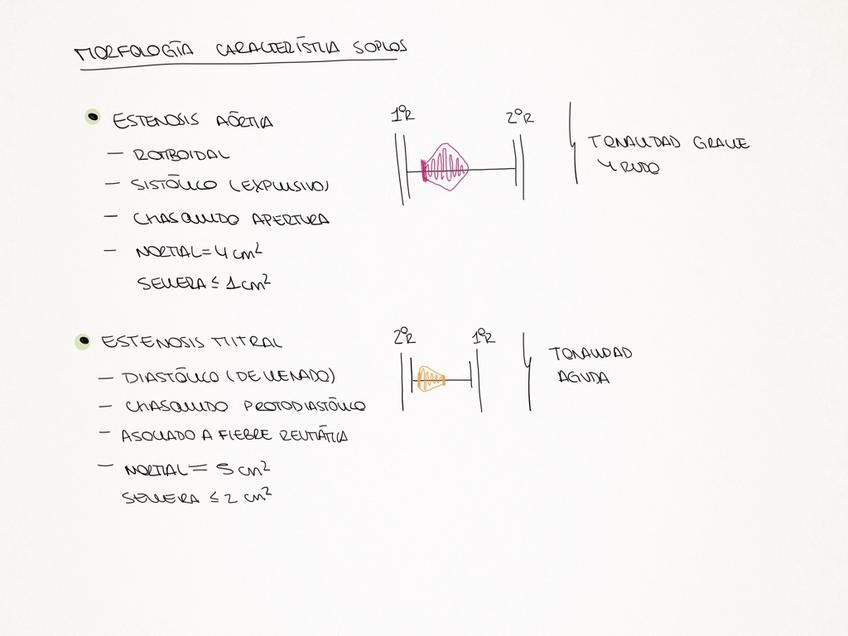 MORFOLOGÍA CARACTERÍSTICA SOPLOS
• ESTENOSIS AÓRTICA
— ROMBOIDAL
— SISTÓLICO (EXPULSIVO)
— CHASQUIDO APERTURA
— NORMAL = 4 cm²
SEVERA ≤ 1 cm²
1ºR
2ºR
TONALIDAD GRAVE
Y RUDO
• ESTENOSIS MITRAL
— DIASTÓLICO (DE LLENADO)
— CHASQUIDO PROTODIASTÓLICO
— ASOCIADO A FIEBRE REUMÁTICA
— NORMAL = 5 cm²
SEVERA ≤ 2 cm²
2ºR
1ºR
TONALIDAD
AGUDA